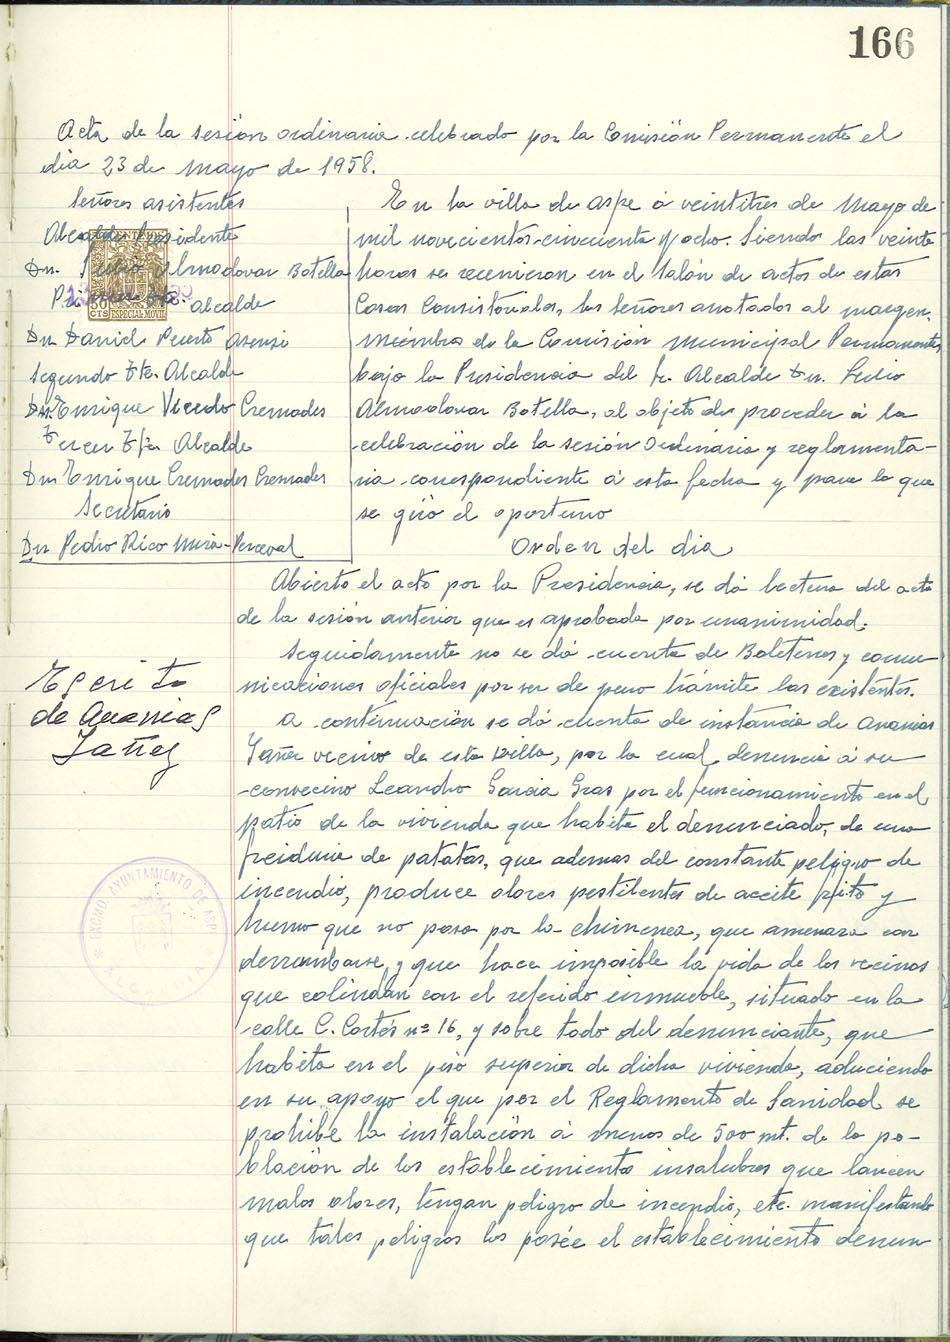 166
Acta de la sesión ordinaria celebrado por la Comisión Permanente el
dia 23 de Mayo de 1958.
Señores asistentes
Alcalde Presidente
Dn. Julio Almodovar Botella
Primer Tte. Alcalde
Dn Daniel Puerto Asensi
Segundo Tte. Alcalde
Dn. Enrique Vicedo Cremades
Tercer Tte. Alcalde
Dn Enrique Cremades Cremades
Secretario
Dn Pedro Rico Mira-Perceval
50 CTS ESPECIAL MOVIL
En la villa de Aspe á veintitres de Mayo de
mil novecientos cincuenta y ocho. Siendo las veinte
horas se reunieron en el salón de actos de estas
Casas Consistoriales, los señores anotados al margen,
miembros de la Comisión Municipal Permanente
bajo la Presidencia del Sr. Alcalde Dn. Julio
Almodovar Botella, al objeto de proceder á la
celebración de la sesión ordinaria y reglamenta-
ria correspondiente á esta fecha y para lo que
se giró el oportuno
Orden del dia
Abierto el acto por la Presidencia, se dá lectura del acta
de la sesión anterior que es aprobada por unanimidad.
Seguidamente no se dá cuenta de Boletines y comu-
nicaciones oficiales por ser de puro trámite las existentes.
Escrito
de Ananias
Yañez
A continuación se dá cuenta de instancia de Ananias
Yañez vecino de esta Villa, por la cual denuncia á su
convecino Leandro Garcia Gras por el funcionamiento en el
patio de la vivienda que habita el denunciado, de una
freiduria de patatas, que ademas del constante peligro de
incendio, produce olores pestilentes de aceite frito y
humo que no pasa por la chimenea, que amenaza con
derrumbarse, y que hace imposible la vida de los vecinos
que colindan con el referido inmueble, situado en la
calle C. Cortés nº 16, y sobre todo del denunciante, que
habita en el piso superior de dicha vivienda, aduciendo
en su apoyo el que por el Reglamento de Sanidad se
prohibe la instalación á menos de 500 mt. de la po-
blación de los establecimientos insalubres que lancen
malos olores, tengan peligro de incendio, etc. manifestando
que tales peligros los posée el establecimiento denun
EXCMO. AYUNTAMIENTO DE ASPE
ALCALDIA